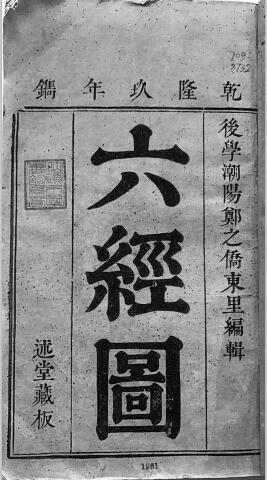 乾隆玖年鐫
後學潮陽鄭之僑東里編輯
六經圖
述堂藏板
1961